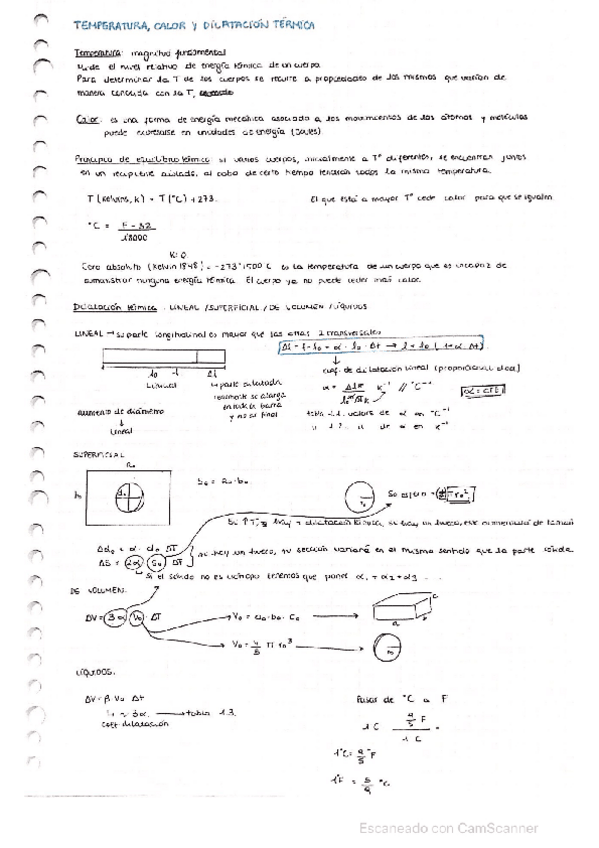 TEMPERATURA, CALOR Y DILATACIÓN TÉRMICA
Temperatura: magnitud fundamental
Mide el nivel relativo de energía térmica de un cuerpo.
Para determinar la T de los cuerpos se recurre a propiedades de los mismos que varían de
manera conocida con la T,
Calor: es una forma de energía mecánica asociada a los movimientos de los átomos y moléculas
puede expresarse en unidades de energía (Joules)
Principio de equilibrio térmico: si varios cuerpos, inicialmente a Tª diferentes, se encuentran juntos
en un recipiente aislado, al cabo de cierto tiempo tendrán todos la misma temperatura.
T (Kelvins, K) = T (°C) + 273. El que está a mayor Tª cede calor para que se igualen
°C = F - 32 /
K: 0
Cero absoluto (Kelvin 1848) = -273'1500 C es la temperatura de un cuerpo que es incapaz de
suministrar ninguna energía térmica. El cuerpo ya no puede ceder más calor.
Dilatación térmica: LINEAL / SUPERFICIAL / DE VOLUMEN / LÍQUIDOS
LINEAL → su parte longitudinal es mayor que las otras 2 transversales
Δl = l - l₀ = α · l₀ · Δt → l = l₀ (1+α Δt)
coef. de dilatación lineal
l₀ Δl
Lineal
parte dilatada
realmente se alarga
en toda la barra
y no su final
K⁻¹ // °C⁻¹
α = CTE
aumento de diámetro
↓
Lineal
tabla 1.1. valores de α en °C⁻¹
" 1.2. " de α en K⁻¹
SUPERFICIAL
S₀ = a₀·b₀
hay un hueco, este aumentará de tamaño
Δd₀ = α · d₀ ΔT
ΔS = 2α S₀ ΔT
hay un hueco, su sección variará en el mismo sentido que la parte sólida
Si el sólido no es isótropo tenemos que poner α₁ + α₂ + α₃ ...
DE VOLUMEN:
ΔV = 3α V₀ · ΔT
V₀ = a₀ · b₀ · c₀
a b c
V₀ = 4/3 π r₀³
r₀
LÍQUIDOS:
ΔV = β V₀ Δt
→ tabla 1.3.
coef. dilatación
Pasar de °C a F
1 C 9/5 F / 1 C =
1°C = 9/5 °F
1°F = 5/9 °C
Escaneado con CamScanner